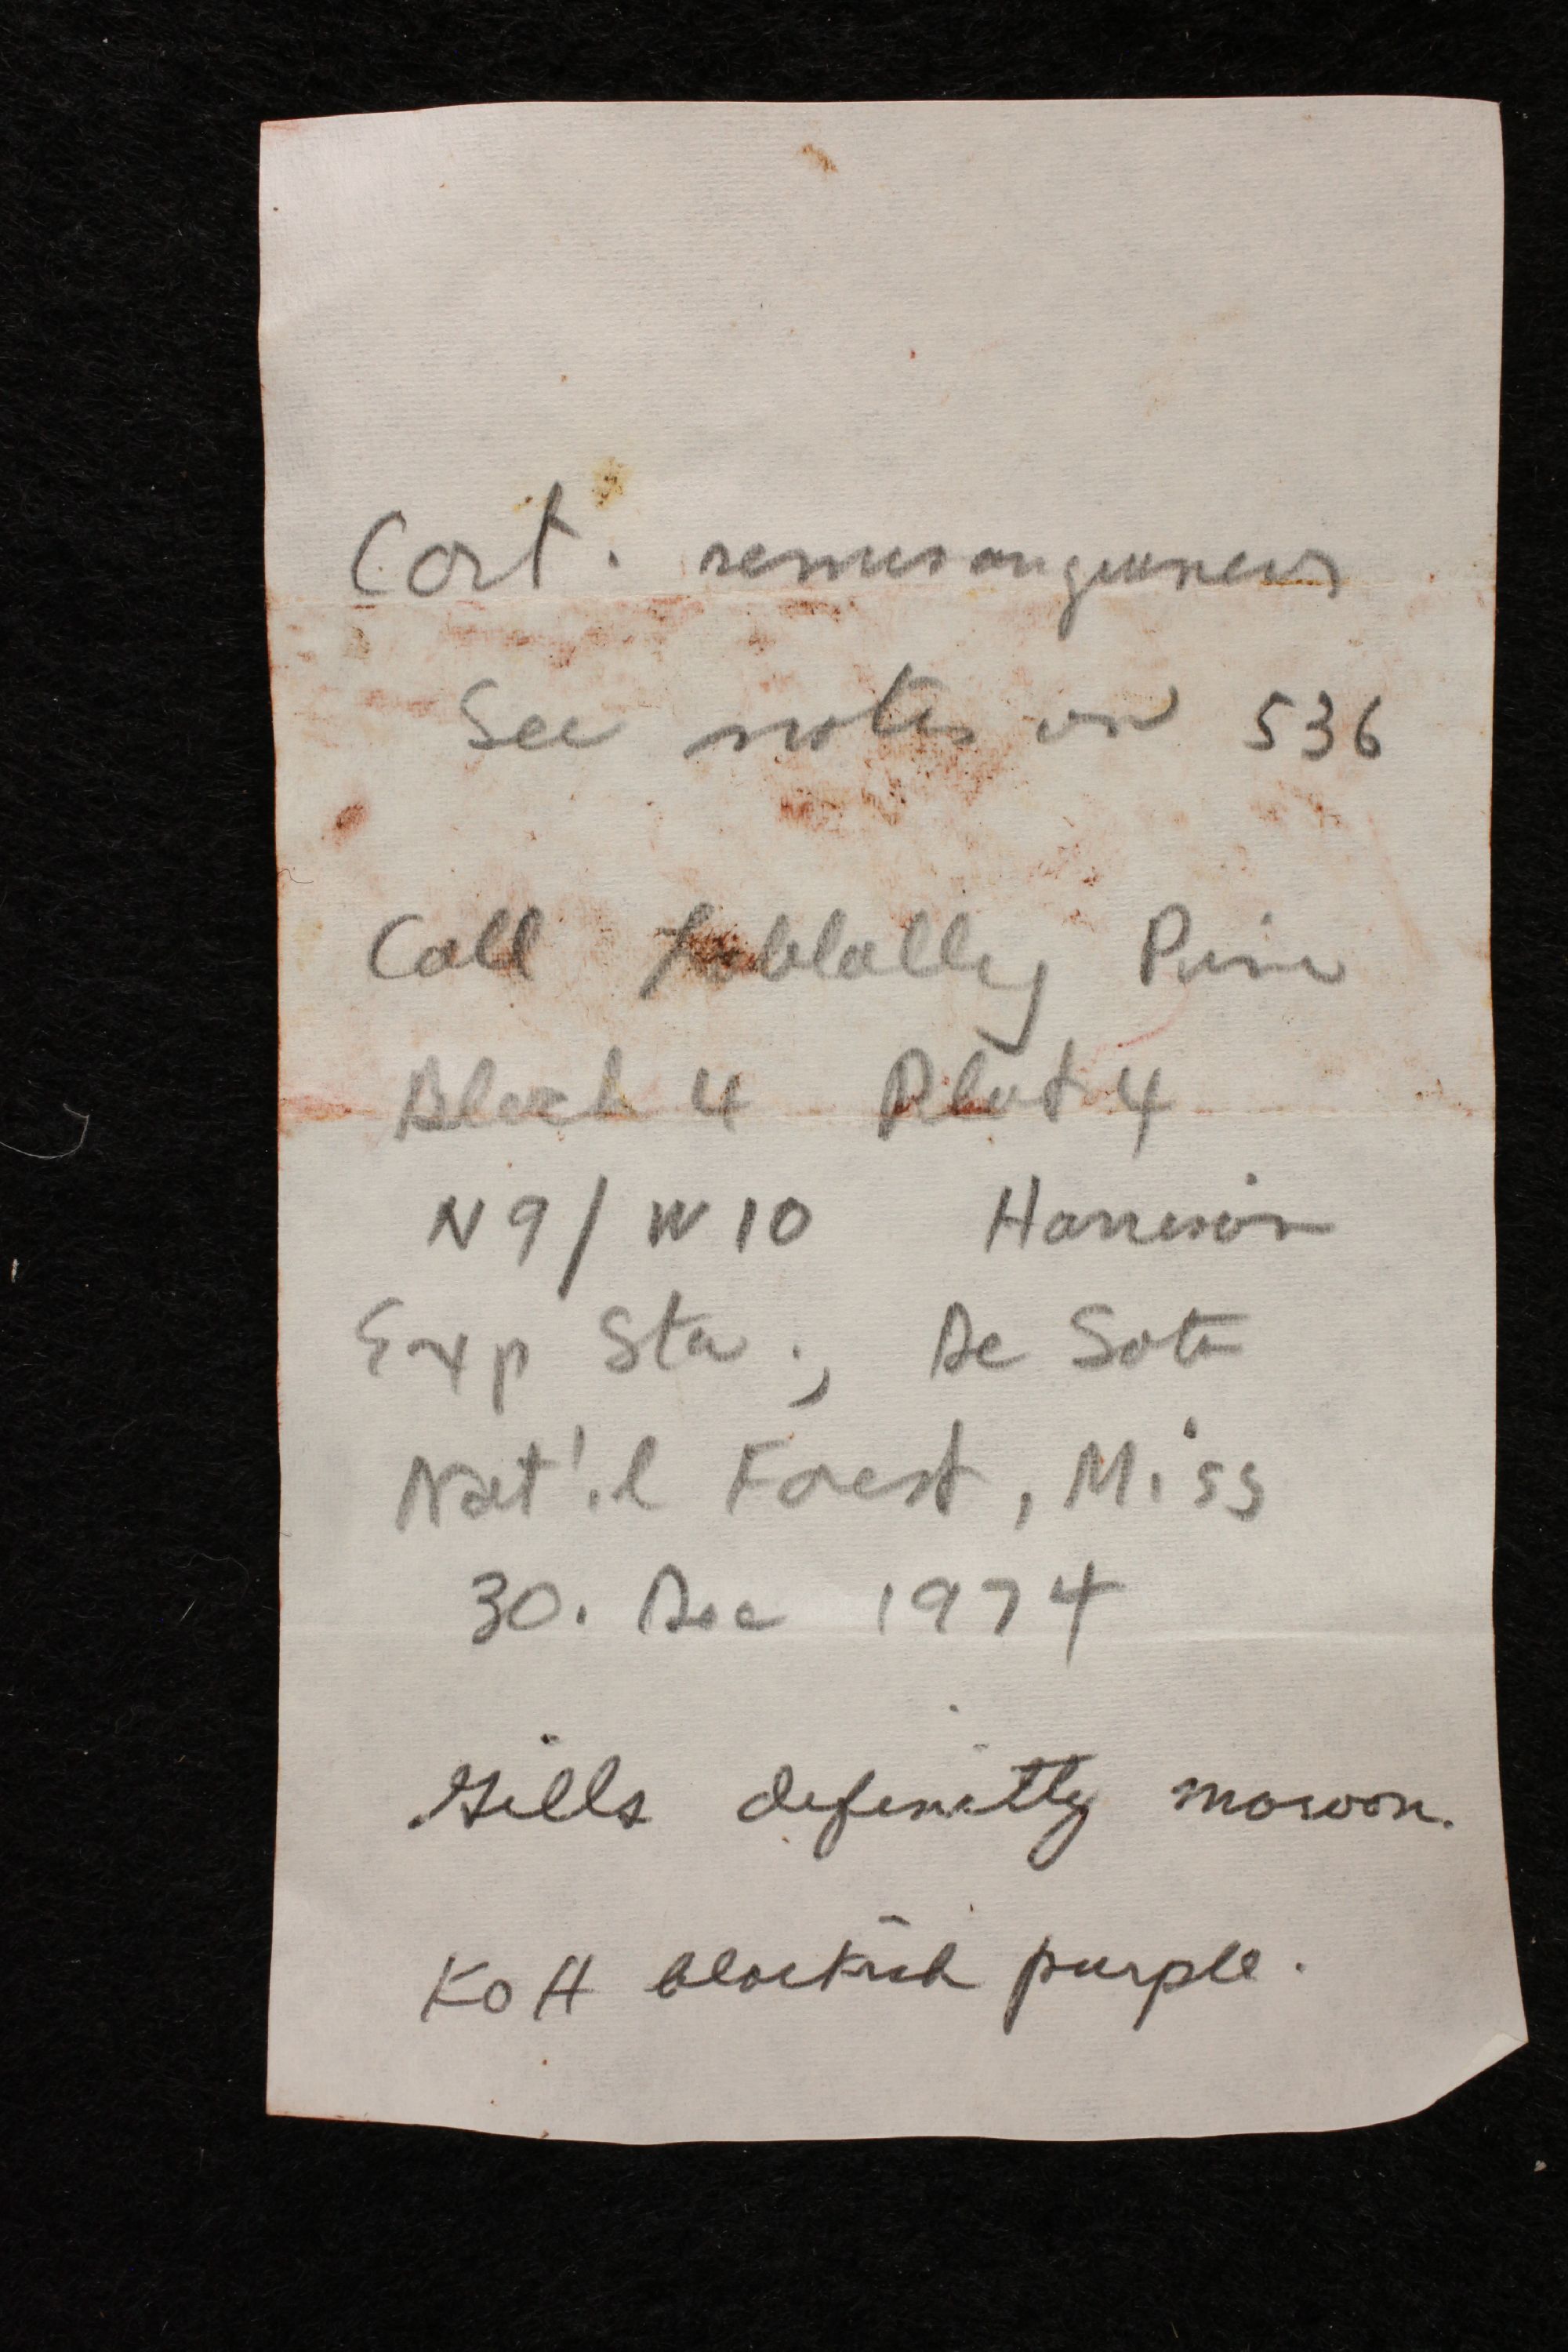 Cort. semisanguineus
See notes on 536
Coll Loblolly Pine
Block 4 Plot 4
N9/W10 Harrison
Exp Sta., De Soto
Nat'l Forest, Miss
30. Dec 1974
Gills definitly maroon.
KOH blackish purple.